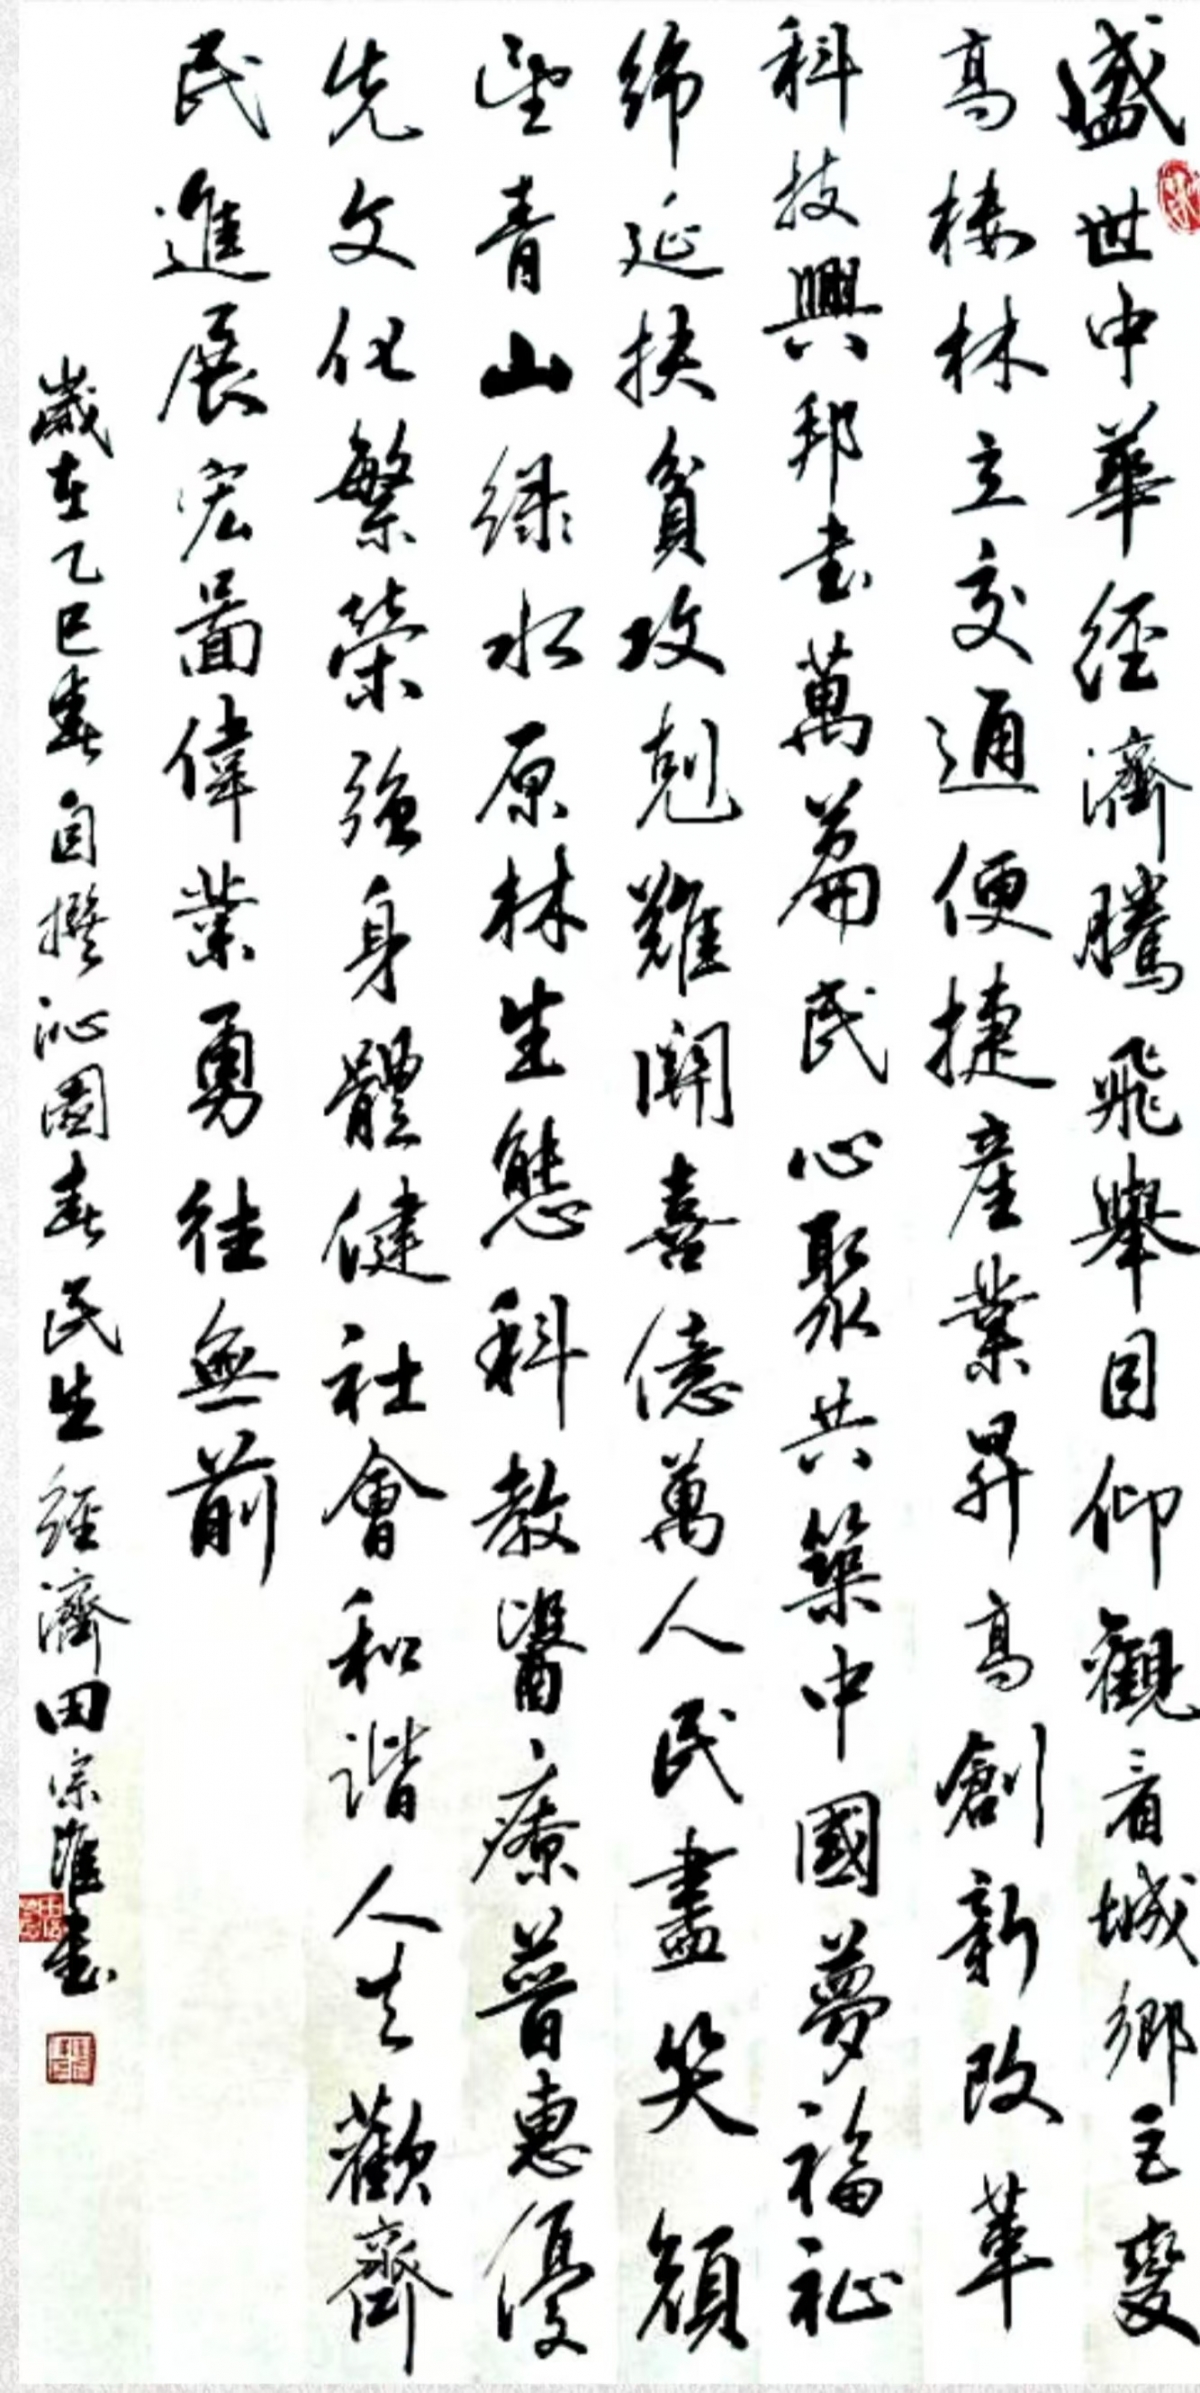 盛世中華經濟騰飛舉目仰觀看城鄉巨變
高樓林立交通便捷產業昇高創新改革
科技興邦書萬篇民心聚共築中國夢福祉
綿延扶貧攻剋難關喜億萬人民盡笑顏
望青山綠水原林生態科教醫療普惠優
先文化繁榮強身體健社會和諧人生歡齊
民進展宏圖偉業勇往無前
歲在乙巳春自撰沁園春民生經濟田宗淮書